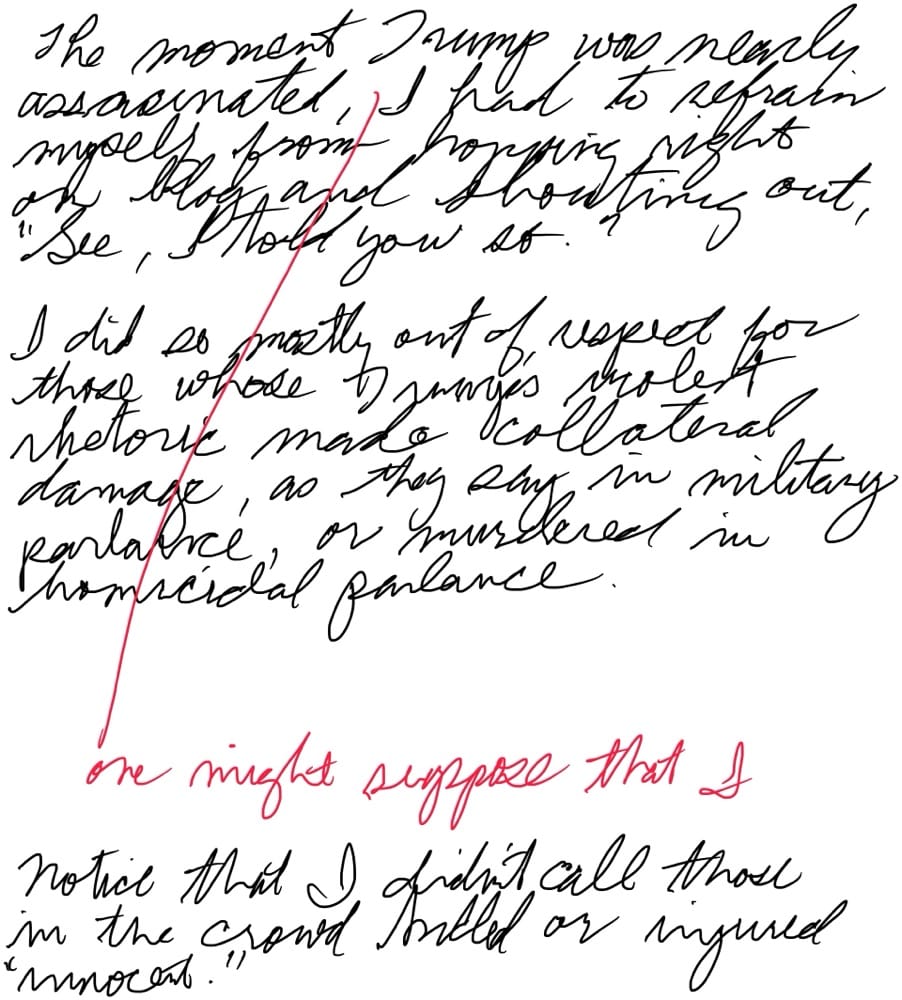 The moment Trump was nearly
assassinated, I had to refrain
myself from hopping right
on blog and shouting out,
"See, I told you so."
I did so mostly out of respect for
those whose Trump's violent
rhetoric made collateral
damage, as they say in military
parlance, or murdered in
homicidal parlance.
one might suppose that I
Notice that I didn't call those
in the crowd killed or injured
"innocent."